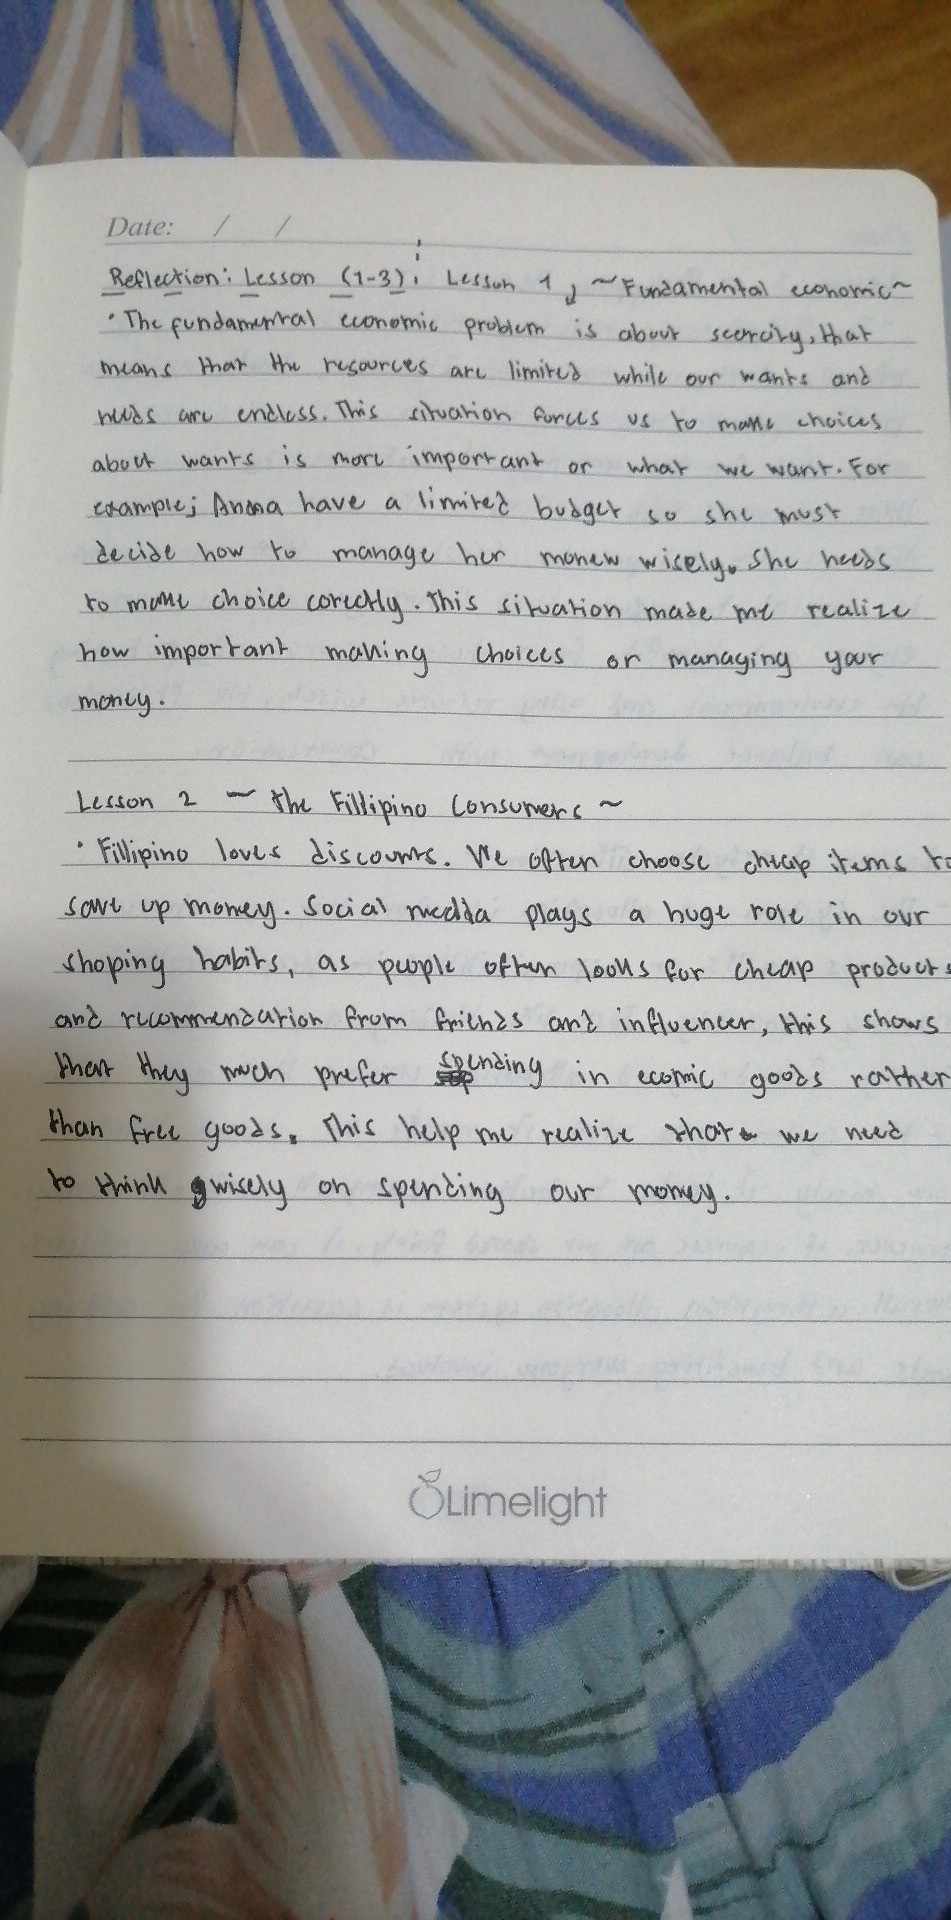 Date: / /
Reflection: Lesson (1-3): Lesson 1, ~Fundamental economic~
• The fundamental economic problem is about scercity, that
means that the resources are limited while our wants and
needs are endless. This situation forces us to make choices
about wants is more important or what we want. For
example; Anna have a limited budget so she must
decide how to manage her monew wisely. She needs
to make choice corectly. This situation made me realize
how important making choices or managing your
money.
Lesson 2 ~ The Fillipino Consumers ~
• Fillipino loves discounts. We often choose cheap items to
save up money. Social media plays a huge role in our
shoping habits, as people often looks for cheap products
and recommendation from friends and influencer, this shows
that they much prefer spending in ecomic goods rather
than free goods. This help me realize that we need
to think wisely on spending our money.
Limelight